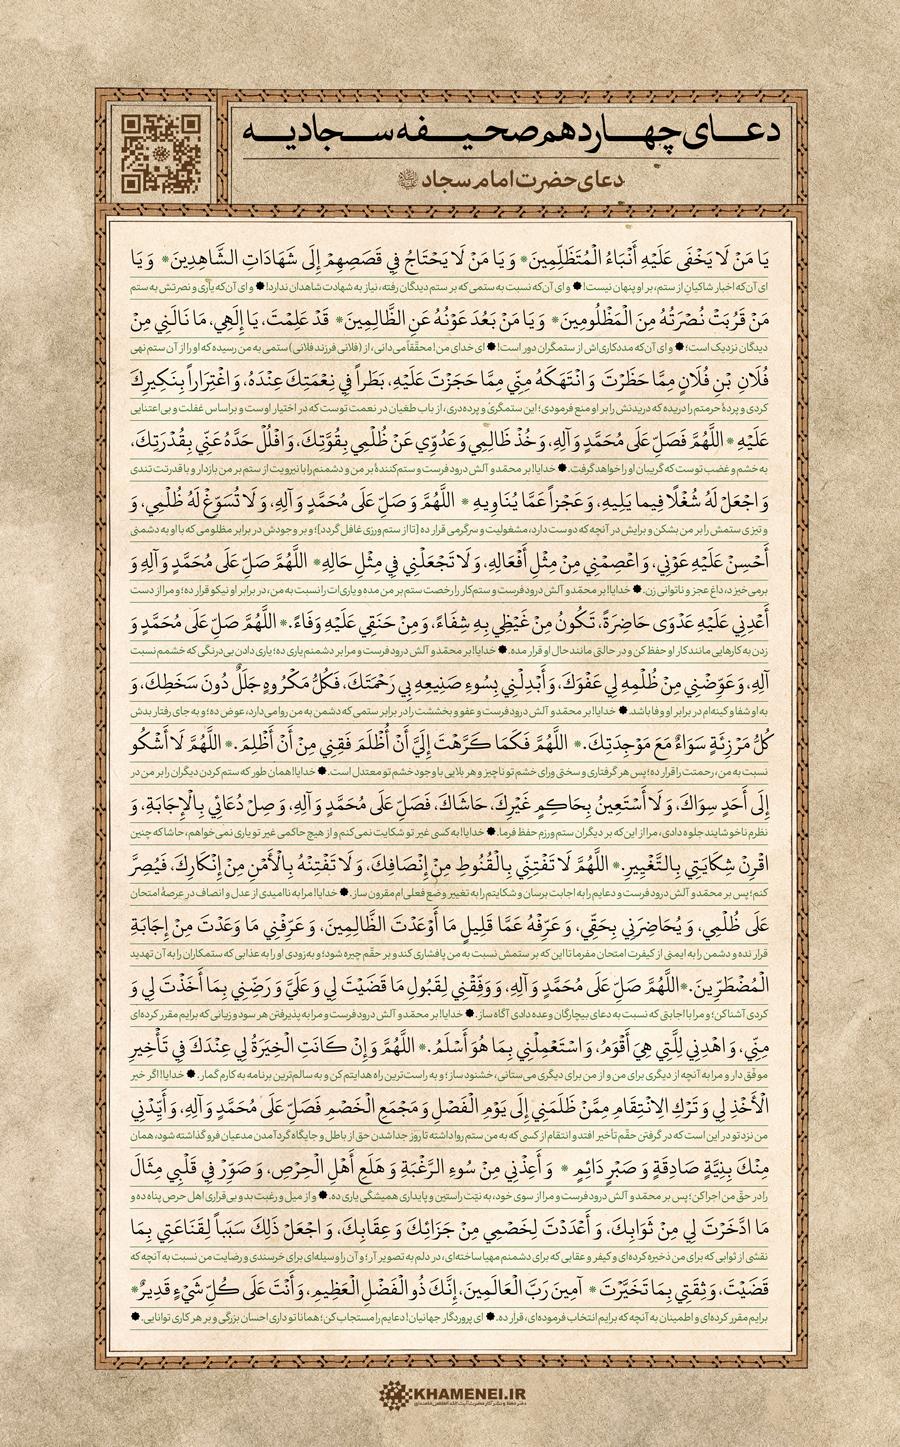 دعای چهاردهم صحیفه سجادیه
دعای حضرت امام سجاد
يَا مَنْ لَا يَخْفَى عَلَيْهِ أَنْبَاءُ الْمُتَظَلِّمِينَ * وَ يَا مَنْ لَا يَحْتَاجُ فِي قَصَصِهِمْ إِلَى شَهَادَاتِ الشَّاهِدِينَ * وَ يَا
ای آن‌که اخبار شاکیان از ستم، بر او پنهان نیست! و ای آن‌که نسبت به ستمی که بر ستم‌دیدگان رفته، نیاز به شهادت شاهدان ندارد! و ای آن‌که یاری و نصرتش به ستم
مَنْ قَرُبَتْ نُصْرَتُهُ مِنَ الْمَظْلُومِينَ * وَ يَا مَنْ بَعُدَ عَوْنُهُ عَنِ الظَّالِمِينَ * قَدْ عَلِمْتَ، يَا إِلَهِي، مَا نَالَنِي مِنْ
دیدگان نزدیک است؛ و ای آن‌که مددکاری‌اش از ستمگران دور است! ای خدای من! محققاً می‌دانی، از (فلانی فرزند فلانی) ستمی به من رسیده که او را از آن ستم نهی
فُلَانِ بْنِ فُلَانٍ مِمَّا حَظَرْتَ وَ انْتَهَكَهُ مِنِّي مِمَّا حَجَزْتَ عَلَيْهِ، بَطَراً فِي نِعْمَتِكَ عِنْدَهُ، وَ اغْتِرَاراً بِنَكِيرِكَ
کردی و پردهٔ حرمتم را دریده که دریدنش را بر او منع فرمودی؛ این ستمگری و پرده‌دری، از باب طغیان در نعمت توست که در اختیار اوست و براساس غفلت و بی‌اعتنایی
عَلَيْهِ * اللَّهُمَّ فَصَلِّ عَلَى مُحَمَّدٍ وَ آلِهِ، وَ خُذْ ظَالِمِي وَ عَدُوِّي عَنْ ظُلْمِي بِقُوَّتِكَ، وَ افْلُلْ حَدَّهُ عَنِّي بِقُدْرَتِكَ،
به خشم و غضب توست که گریبان او را خواهد گرفت. خدایا! بر محمّد و آلش درود فرست و ستم‌کنندهٔ بر من و دشمنم را با نیرویت از ستم بر من بازدار و با قدرتت تندی
وَ اجْعَلْ لَهُ شُغْلًا فِيما يَلِيهِ، وَ عَجْزاً عَمَّا يُنَاوِيهِ * اللَّهُمَّ وَ صَلِّ عَلَى مُحَمَّدٍ وَ آلِهِ، وَ لَا تُسَوِّغْ لَهُ ظُلْمِي، وَ
و تیزی ستمش را بر من بشکن و برایش در آنچه که دوست دارد، مشغولیت و سرگرمی قرار ده [تا از ستم‌ورزی غافل گردد]؛ و بر وجودش در برابر مظلومی که با او به دشمنی
أَحْسِنْ عَلَيْهِ عَوْنِي، وَ اعْصِمْنِي مِنْ مِثْلِ أَفْعَالِهِ، وَ لَا تَجْعَلْنِي فِي مِثْلِ حَالِهِ * اللَّهُمَّ صَلِّ عَلَى مُحَمَّدٍ وَ آلِهِ وَ
برمی‌خیزد، داغ عجز و ناتوانی زن. خدایا! بر محمّد و آلش درود فرست و ستم‌کار را رخصت ستم بر من مده و یاری‌ات را نسبت به من، در برابر او نیکو قرار ده؛ و مرا از دست
أَعْدِنِي عَلَيْهِ عَدْوَى حَاضِرَةً، تَكُونُ مِنْ غَيْظِي بِهِ شِفَاءً، وَ مِنْ حَنَقِي عَلَيْهِ وَفَاءً. * اللَّهُمَّ صَلِّ عَلَى مُحَمَّدٍ وَ
زدن به کارهایی مانند کار او حفظ کن و در حالتی مانند حال او قرار مده. خدایا! بر محمّد و آلش درود فرست و مرا بر دشمنم یاری ده؛ یاری دادن بی‌درنگی که خشمم نسبت
آلِهِ، وَ عَوِّضْنِي مِنْ ظُلْمِهِ لِي عَفْوَكَ، وَ أَبْدِلْنِي بِسُوءِ صَنِيعِهِ بِي رَحْمَتَكَ، فَكُلُّ مَكْرُوهٍ جَلَلٌ دُونَ سَخَطِكَ، وَ
به او شفا و کینه‌ام در برابر او وفا باشد. خدایا! بر محمّد و آلش درود فرست و عفو و بخششت را در برابر ستمی که دشمن به من روا می‌دارد، عوض ده؛ و به جای رفتار بدش
كُلُّ مَرْزِئَةٍ سَوَاءٌ مَعَ مَوْجِدَتِكَ. * اللَّهُمَّ فَكَمَا كَرَّهْتَ إِلَيَّ أَنْ أُظْلَمَ فَقِنِي مِنْ أَنْ أَظْلِمَ. * اللَّهُمَّ لَا أَشْكُو
نسبت به من، رحمتت را قرار ده؛ پس هر گرفتاری و سختی ورای خشم تو ناچیز و هر بلایی با وجود خشم تو معتدل است. خدایا! همان طور که ستم کردن دیگران را بر من در
إِلَى أَحَدٍ سِوَاكَ، وَ لَا أَسْتَعِينُ بِحَاكِمٍ غَيْرِكَ، حَاشَاكَ، فَصَلِّ عَلَى مُحَمَّدٍ وَ آلِهِ، وَ صِلْ دُعَائِي بِالْإِجَابَةِ، وَ
نظرم ناخوشایند جلوه دادی، مرا از این‌که بر دیگران ستم ورزم حفظ فرما. خدایا! به کسی غیر تو شکایت نمی‌کنم و از هیچ حاکمی غیر تو یاری نمی‌خواهم، حاشا که چنین
اقْرِنْ شِكَايَتِي بِالتَّغْيِيرِ. * اللَّهُمَّ لَا تَفْتِنِّي بِالْقُنُوطِ مِنْ إِنْصَافِكَ، وَ لَا تَفْتِنْهُ بِالْأَمْنِ مِنْ إِنْكَارِكَ، فَيُصِرَّ
کنم؛ پس بر محمّد و آلش درود فرست و دعایم را به اجابت برسان و شکایتم را به تغییر وضع فعلی‌ام مقرون ساز. خدایا! مرا به ناامیدی از عدل و انصاف در عرصهٔ امتحان
عَلَى ظُلْمِي، وَ يُحَاضِرَنِي بِحَقِّي، وَ عَرِّفْهُ عَمَّا قَلِيلٍ مَا أَوْعَدْتَ الظَّالِمِينَ، وَ عَرِّفْنِي مَا وَعَدْتَ مِنْ إِجَابَةِ
قرار نده و دشمن را به ایمنی از کیفرت امتحان مفرما تا این که بر ستمش نسبت به من پافشاری کند و بر حقّم چیره شود؛ و به‌زودی او را به عذابی که ستمکاران را به آن تهدید
الْمُضْطَرِّينَ. * اللَّهُمَّ صَلِّ عَلَى مُحَمَّدٍ وَ آلِهِ، وَ وَفِّقْنِي لِقَبُولِ مَا قَضَيْتَ لِي وَ عَلَيَّ وَ رَضِّنِي بِمَا أَخَذْتَ لِي وَ
کردی آشنا کن؛ و مرا با اجابتی که نسبت به دعای بیچارگان وعده دادی آگاه ساز. خدایا! بر محمّد و آلش درود فرست و مرا به پذیرفتن هر سود و زیانی که برایم مقرر کرده‌ای
مِنِّي، وَ اهْدِنِي لِلَّتِي هِيَ أَقْوَمُ، وَ اسْتَعْمِلْنِي بِمَا هُوَ أَسْلَمُ. * اللَّهُمَّ وَ إِنْ كَانَتِ الْخِيَرَةُ لِي عِنْدَكَ فِي تَأْخِيرِ
موفّق دار و مرا به آنچه از دیگری برای من و از من برای دیگری می‌ستانی، خشنود ساز؛ و به راست‌ترین راه هدایتم کن و به سالم‌ترین برنامه به کارم گمار. خدایا! اگر خیر
الْأَخْذِ لِي وَ تَرْكِ الِانْتِقَامِ مِمَّنْ ظَلَمَنِي إِلَى يَوْمِ الْفَصْلِ وَ مَجْمَعِ الْخَصْمِ فَصَلِّ عَلَى مُحَمَّدٍ وَ آلِهِ، وَ أَيِّدْنِي
من نزد تو در این است که در گرفتن حقّم تأخیر افتد و انتقام از کسی که به من ستم روا داشته تا روز جدا شدن حق از باطل و جایگاه گردآمدن مدعیان فرو گذاشته شود، همان
مِنْكَ بِنِيَّةٍ صَادِقَةٍ وَ صَبْرٍ دَائِمٍ * وَ أَعِذْنِي مِنْ سُوءِ الرَّغْبَةِ وَ هَلَعِ أَهْلِ الْحِرْصِ، وَ صَوِّرْ فِي قَلْبِي مِثَالَ
را در حقّ من اجرا کن؛ پس بر محمّد و آلش درود فرست و مرا از سوی خود، به نیّت راستین و پایداری همیشگی یاری ده. و از میل و رغبت بد و بی‌قراری اهل حرص پناه ده و
مَا ادَّخَرْتَ لِي مِنْ ثَوَابِكَ، وَ أَعْدَدْتَ لِخَصْمِي مِنْ جَزَائِكَ وَ عِقَابِكَ، وَ اجْعَلْ ذَلِكَ سَبَباً لِقَنَاعَتِي بِمَا
نقشی از ثوابی که برای من ذخیره کرده‌ای و کیفر و عقابی که برای دشمنم مهیا ساخته‌ای، در دلم به تصویر آر؛ و آن را وسیله‌ای برای خرسندی و رضایت من نسبت به آنچه که
قَضَيْتَ، وَ ثِقَتِي بِمَا تَخَيَّرْتَ * آمِينَ رَبَّ الْعَالَمِينَ، إِنَّكَ ذُو الْفَضْلِ الْعَظِيمِ، وَ أَنْتَ عَلَى كُلِّ شَيْءٍ قَدِيرٌ *
برایم مقرر کرده‌ای و اطمینان به آنچه که برایم انتخاب فرموده‌ای، قرار ده. ای پروردگار جهانیان! دعایم را مستجاب کن؛ همانا تو دارای احسان بزرگی و بر هر کاری توانایی.
KHAMENEI.IR